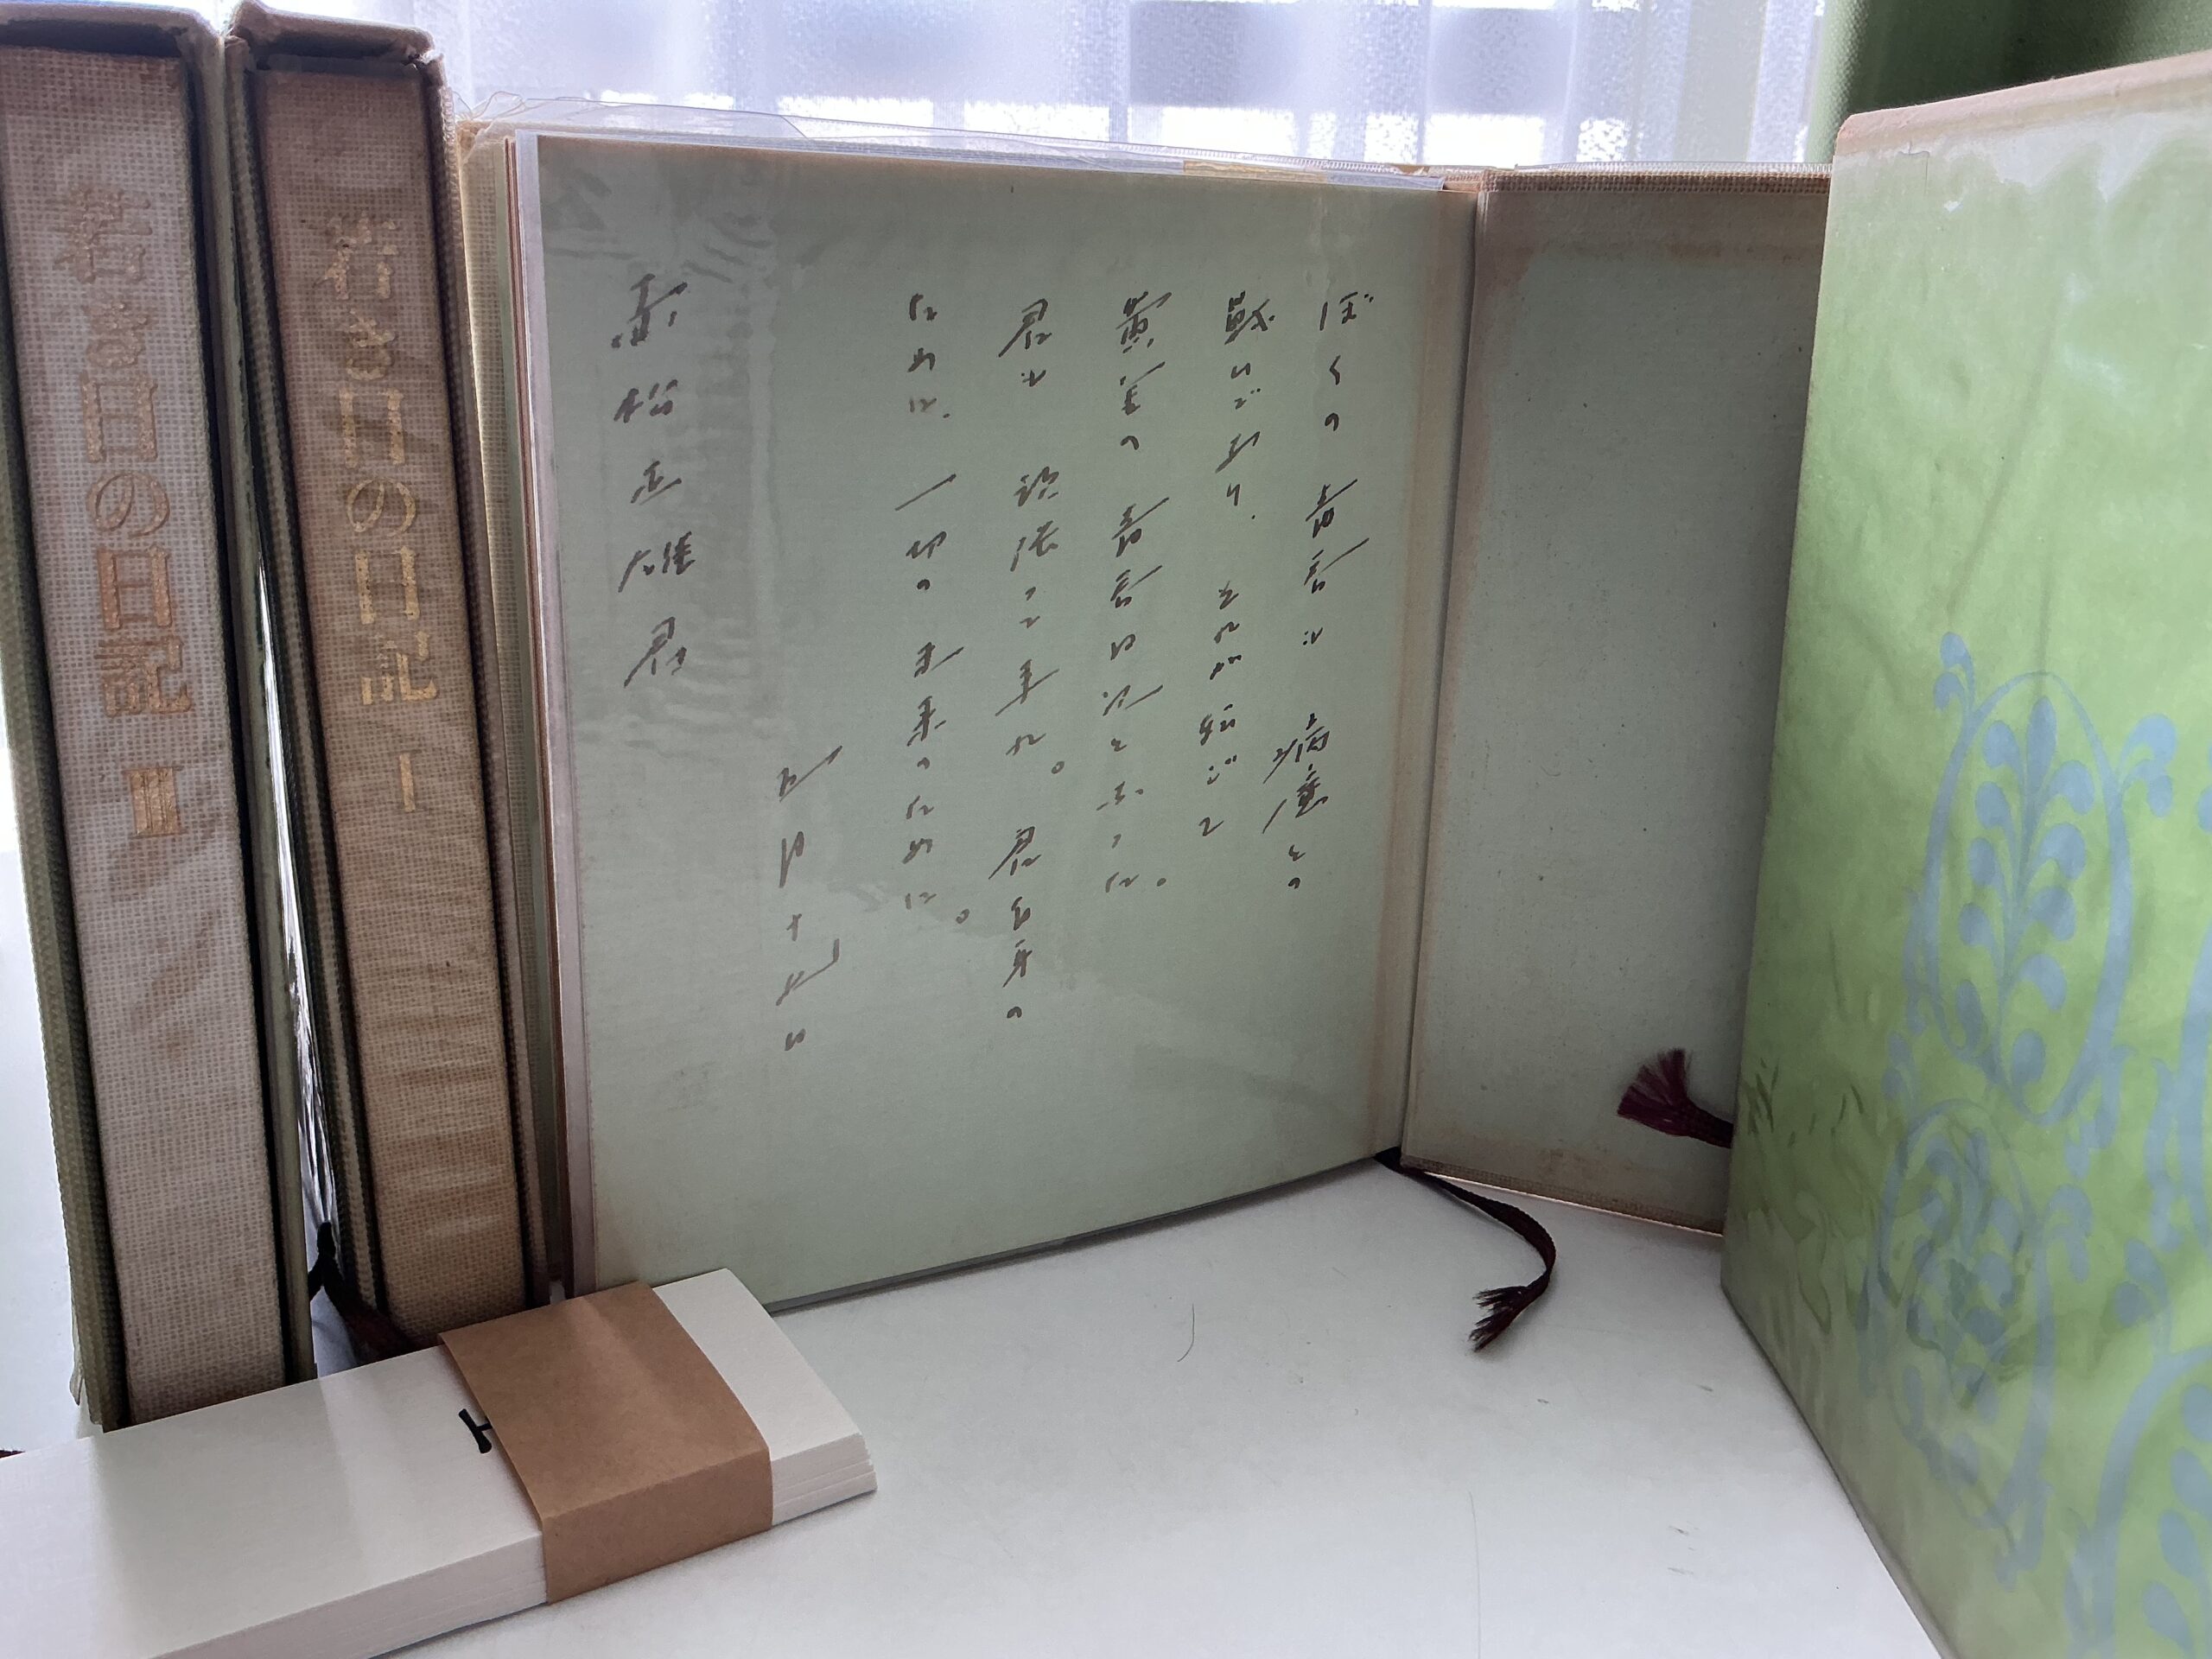 若き日の日記 III
若き日の日記 I
ぼくの 青春は 病魔との
戦いであり、それが転じて
黄金の 青春 となった。
君も 頑張って れ。君自身の
ために、一切の 未来のために。
赤松正雄君